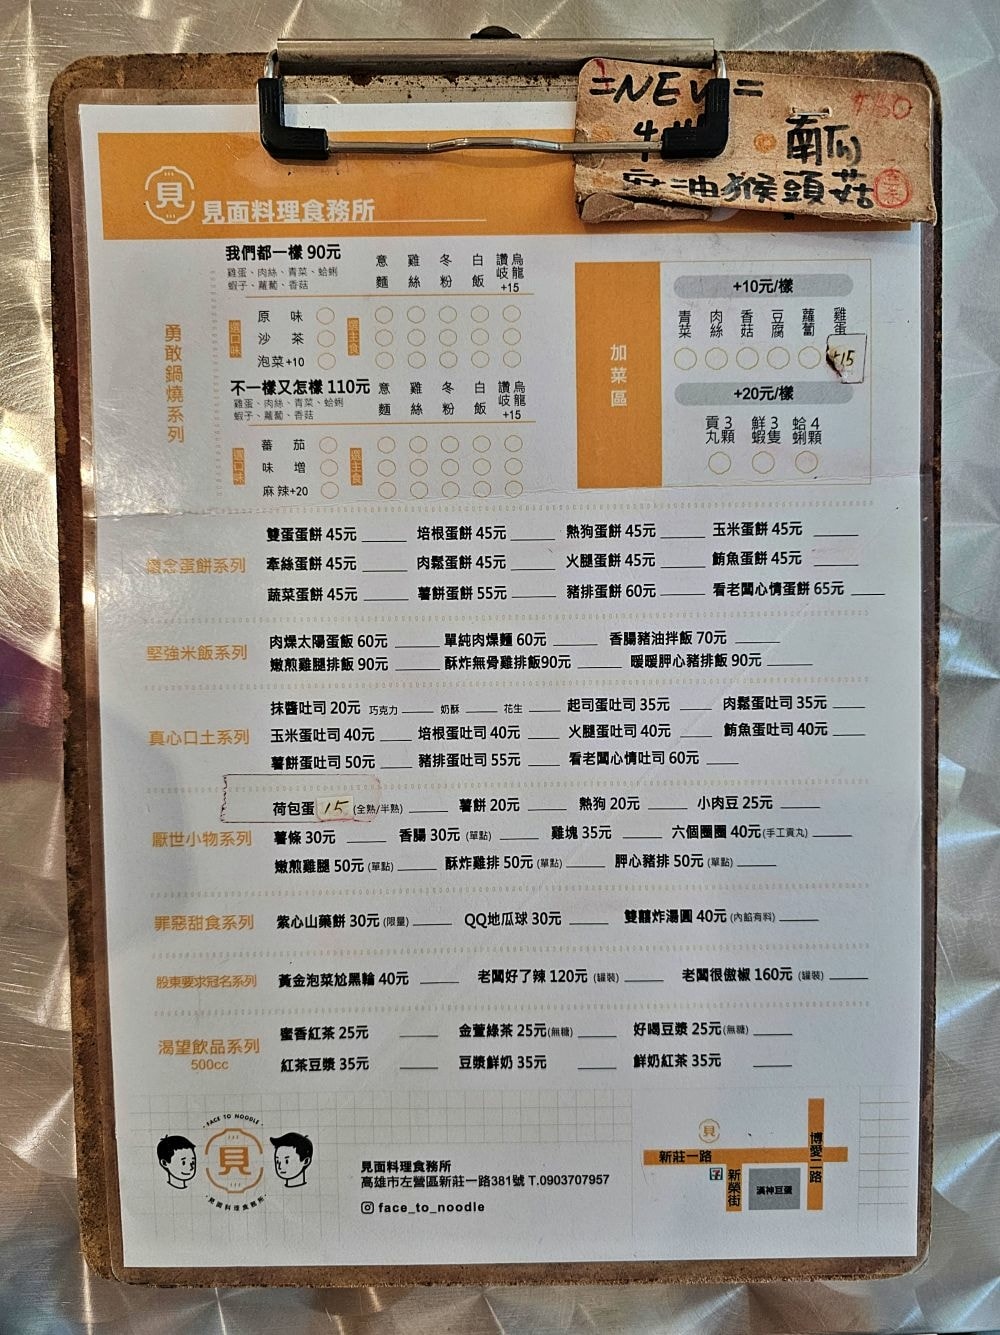 =NEW=
$150
南瓜
麻油猴頭菇
見
見面料理食務所
勇敢鍋燒系列
我們都一樣 90元
雞蛋、肉絲、青菜、蛤蜊
蝦子、蘿蔔、香菇
意麵 雞絲 冬粉 白飯 讚岐烏龍+15
選口味
原味
沙茶
泡菜+10
選主食
不一樣又怎樣 110元
雞蛋、肉絲、青菜、蛤蜊
蝦子、蘿蔔、香菇
意麵 雞絲 冬粉 白飯 讚岐烏龍+15
選口味
蕃茄
味增
麻辣+20
選主食
加菜區
+10元/樣
青菜 肉絲 香菇 豆腐 蘿蔔 雞蛋
+15
+20元/樣
貢丸3顆 鮮蝦3隻 蛤蜊4顆
懷念蛋餅系列
雙蛋蛋餅 45元 培根蛋餅 45元 熱狗蛋餅 45元 玉米蛋餅 45元
牽絲蛋餅 45元 肉鬆蛋餅 45元 火腿蛋餅 45元 鮪魚蛋餅 45元
蔬菜蛋餅 45元 薯餅蛋餅 55元 豬排蛋餅 60元 看老闆心情蛋餅 65元
堅強米飯系列
肉燥太陽蛋飯 60元 單純肉燥麵 60元 香腸豬油拌飯 70元
嫩煎雞腿排飯 90元 酥炸無骨雞排飯90元 暖暖胛心豬排飯 90元
真心口土系列
抹醬吐司 20元 巧克力 奶酥 花生 起司蛋吐司 35元 肉鬆蛋吐司 35元
玉米蛋吐司 40元 培根蛋吐司 40元 火腿蛋吐司 40元 鮪魚蛋吐司 40元
薯餅蛋吐司 50元 豬排蛋吐司 55元 看老闆心情吐司 60元
厭世小物系列
荷包蛋 15 (全熟/半熟) 薯餅 20元 熱狗 20元 小肉豆 25元
薯條 30元 香腸 30元 (單點) 雞塊 35元 六個圈圈 40元 (手工貢丸)
嫩煎雞腿 50元 (單點) 酥炸雞排 50元 (單點) 胛心豬排 50元 (單點)
罪惡甜食系列
紫心山藥餅 30元 (限量) QQ地瓜球 30元 雙囍炸湯圓 40元 (內餡有料)
股東要求冠名系列
黃金泡菜尬黑輪 40元 老闆好了辣 120元 (罐裝) 老闆很傲椒 160元 (罐裝)
渴望飲品系列
500cc
蜜香紅茶 25元 金萱綠茶 25元 (無糖) 好喝豆漿 25元 (無糖)
紅茶豆漿 35元 豆漿鮮奶 35元 鮮奶紅茶 35元
FACE TO NOODLE
見
見面料理食務所
見面料理食務所
高雄市左營區新莊一路381號 T.0903707957
face_to_noodle
見
新莊一路
7
新榮街
漢神巨蛋
博愛二路